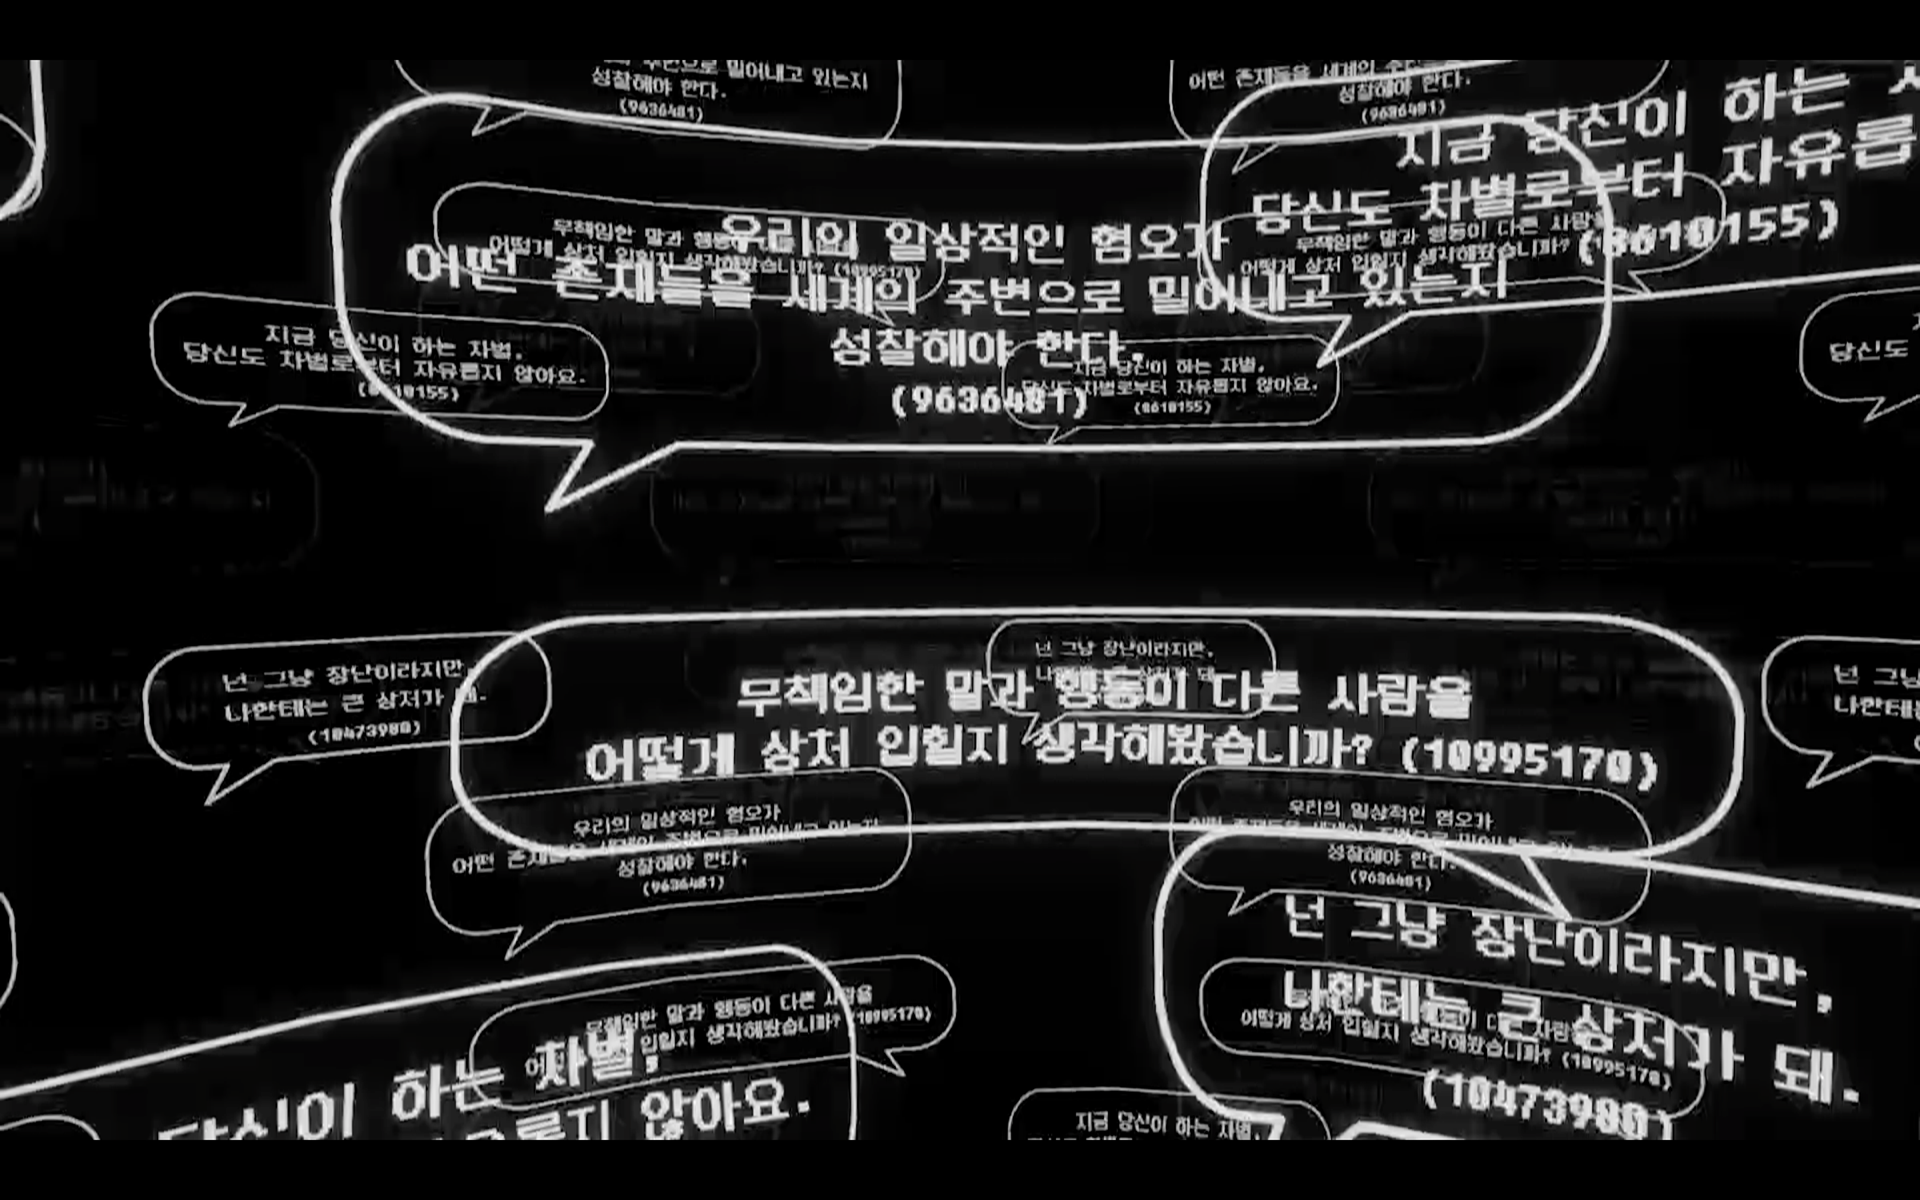 주변으로 밀어내고 있는지
성찰해야 한다.
(9636481)
어떤 존재들을 세계의
성찰해야 한다.
(9636481)
지금 당신이 하는
당신도 차별로부터 자유롭
(8610155)
무책임한 말과
어떻게 상처 입힐지 생각해봤습니까? (10995170)
무책임한 말과 행동이 다른 사람을
어떻게 상처 입힐지 생각해봤습니까?
우리의 일상적인 혐오가
어떤 존재들을 세계의 주변으로 밀어내고 있는지
성찰해야 한다.
(9636481)
지금 당신이 하는 차별,
당신도 차별로부터 자유롭지 않아요.
(8610155)
지금 당신이 하는 차별,
당신도 차별로부터 자유롭지 않아요.
(8610155)
당신도
넌 그냥 장난이라지만,
나한테는 큰 상처가 돼.
(10473980)
넌 그냥 장난이라지만,
나한테는 큰 상처가 돼.
무책임한 말과 행동이 다른 사람을
어떻게 상처 입힐지 생각해봤습니까? (10995170)
넌 그냥
나한테는
우리의 일상적인 혐오가
어떤 존재들을 세계의 주변으로 밀어내고 있는지
성찰해야 한다.
(9636481)
우리의 일상적인 혐오가
성찰해야 한다.
(9636481)
넌 그냥 장난이라지만,
나한테는 큰 상처가 돼.
(10473980)
무책임한 말과 행동이 다른 사람을
입힐지 생각해봤습니까? (10995170)
어떻게 상처 입힐지 생각해봤습니까? (10995170)
당신이 하는 차별,
않아요.
지금 당신이 하는 차별,